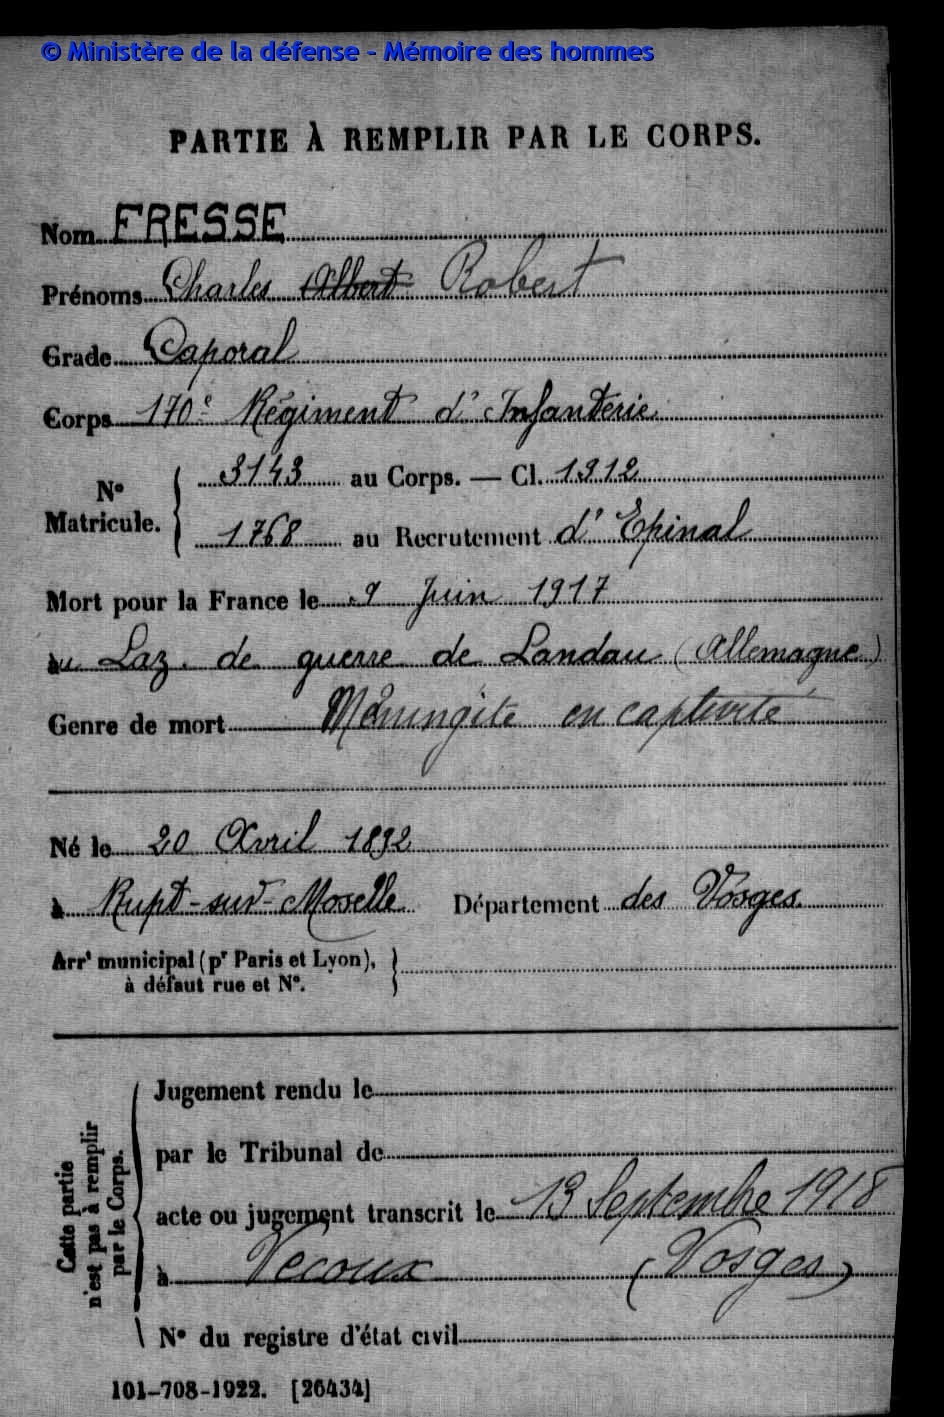 © Ministère de la défense - Mémoire des hommes
PARTIE À REMPLIR PAR LE CORPS.
Nom FRESSE
Prénoms Charles Albert Robert
Grade Caporal
Corps 170e Régiment d'Infanterie
No Matricule. 3143 au Corps. — Cl. 1912
1768 au Recrutement d'Epinal
Mort pour la France le 9 Juin 1917
au Laz. de guerre de Landau (Allemagne)
Genre de mort Méningite en captivité
Né le 20 Avril 1892
à Rupt-sur-Moselle Département des Vosges
Arrt municipal (pr Paris et Lyon),
à défaut rue et No.
Cette partie
n'est pas à remplir
par le Corps.
Jugement rendu le
par le Tribunal de
acte ou jugement transcrit le 13 Septembre 1918
à Vecoux (Vosges)
No du registre d'état civil
101-708-1922. [26434]